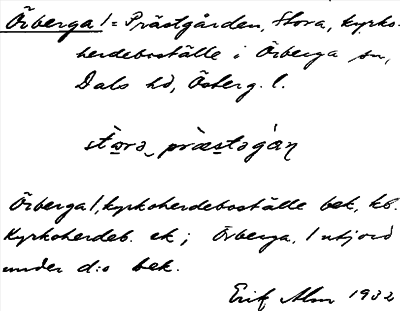 Örberga 1 = Prästgården, Stora, kyrko-
herdeboställe i Örberga sn,
Dals hd, Österg. l.
stòra præstagàn
Örberga 1, kyrkoherdeboställe bek, kb.
Kyrkoherdeb. ek; Örberga. 1 utjord
under d:o bek.
Erik Alm 1932